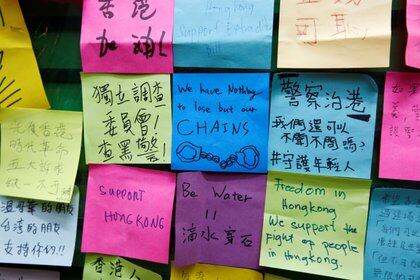 香港
加油!
Hongkong
Support Extradition
Bill!
可恥
獨立調查
委員會!
查黑警!
We have Nothing
to lose but our
CHAINS
警察治港
我們還可以
不聞不問嗎?
#守護年輕人
光復香港
時代革命
五大訴求
缺一不可
SUPPORT
HONGKONG
Be Water
=
滴水穿石
Freedom in
Hongkong
We support the
fight of people
in Hongkong.
台灣的朋友
支持你們!!
香港人